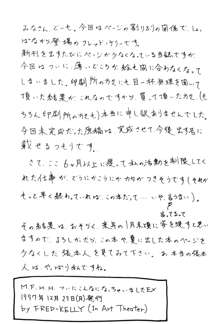 みなさん、どーも。今回はページの割りふりの関係で、しょ
ぱなから登場のフレッド・ケリーです。
新刊を出すたびにページが少なくなっている当誌ですが
今回はついに薄いどころか絵も間に合わなくなって
しまいました。印刷所の方にも目一杯無理を言って
頂いた結果がこれなのですから、買って頂いた方(も
ちろん印刷所の方も)本当に申し訳ありませんでした。
今回未完成だった原稿は完成させて今後出す本に
載せるつもりです。
さて、ここ6ヶ月以上に渡って私の活動を制限してくれ
た仕事が、どうにかこうにかカタがつきそうです(それが
もっと早く終わっていれば、この本だって…いや、言うまい)。
その結果は、おそらく来年の1月末頃に
ますので、よろしかったら、この本や夏に出した本のページを
少なくした張本人を見てみて下さい。ま、本当の張本
人は、やっぱり私ですね。
M.F.M.H. ついにこんなにな、ちゃいましたEX
1997年12月29日(月)発行
by FRED-KELLY (In Art Theater)